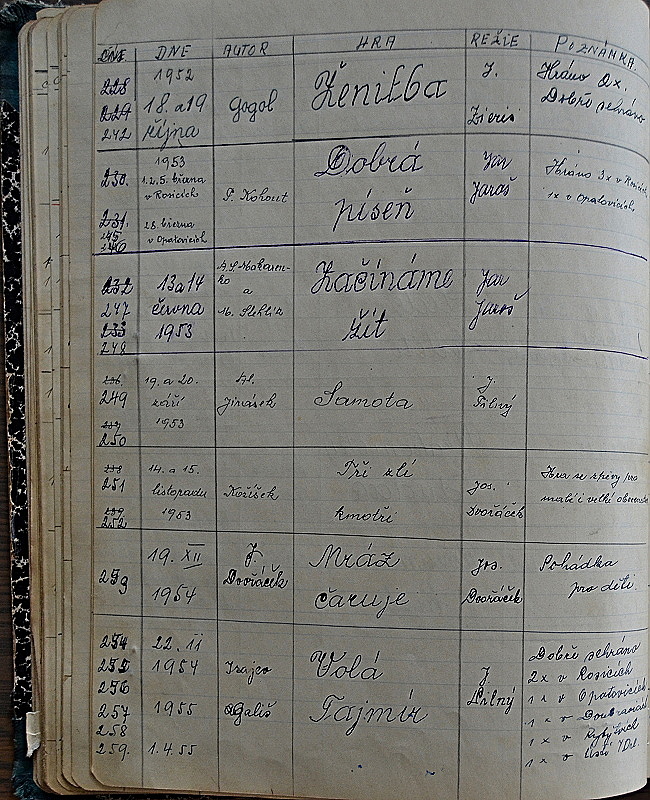 DNE AUTOR HRA REŽIE POZNÁMKA
1952 J. Hráno 2x.
228
229 18. a 19 Gogol Ženitba Dobře sehráno
242 října
1953 Dobrá Jar Hráno 3x v Rosicích
230. 1. 2. 5. března Jaroš 1x v Opatovicích
v Rosicích P. Kohout
231. 28 března píseň
245 v Opatovicích
246
232 13 a 14 A. S. Makaren- Začínáme Jar
ko
247 června a Jaroš
233 1953 žít
248
236. 19. a 20. Al. J.
249 září Jirásek Samota
237 1953
250
238 14. a 15. Tři zlí Hra se zpěvy pro
251 listopadu Kožíšek Jos. malé i velké
239 1953 kmotři Dvořáček
252
19. XII J. Mráz Jos. Pohádka
259 Dvořáček Dvořáček pro děti.
1954 čaruje
254 22. 11 Dobře sehráno
255 1954 Isajev Volá J. 2x v Rosicích
256 1x v Opatovicích
257 1955 a Galič Tajmír 1x v
258 1x v
259. 1. 4. 55 1x v